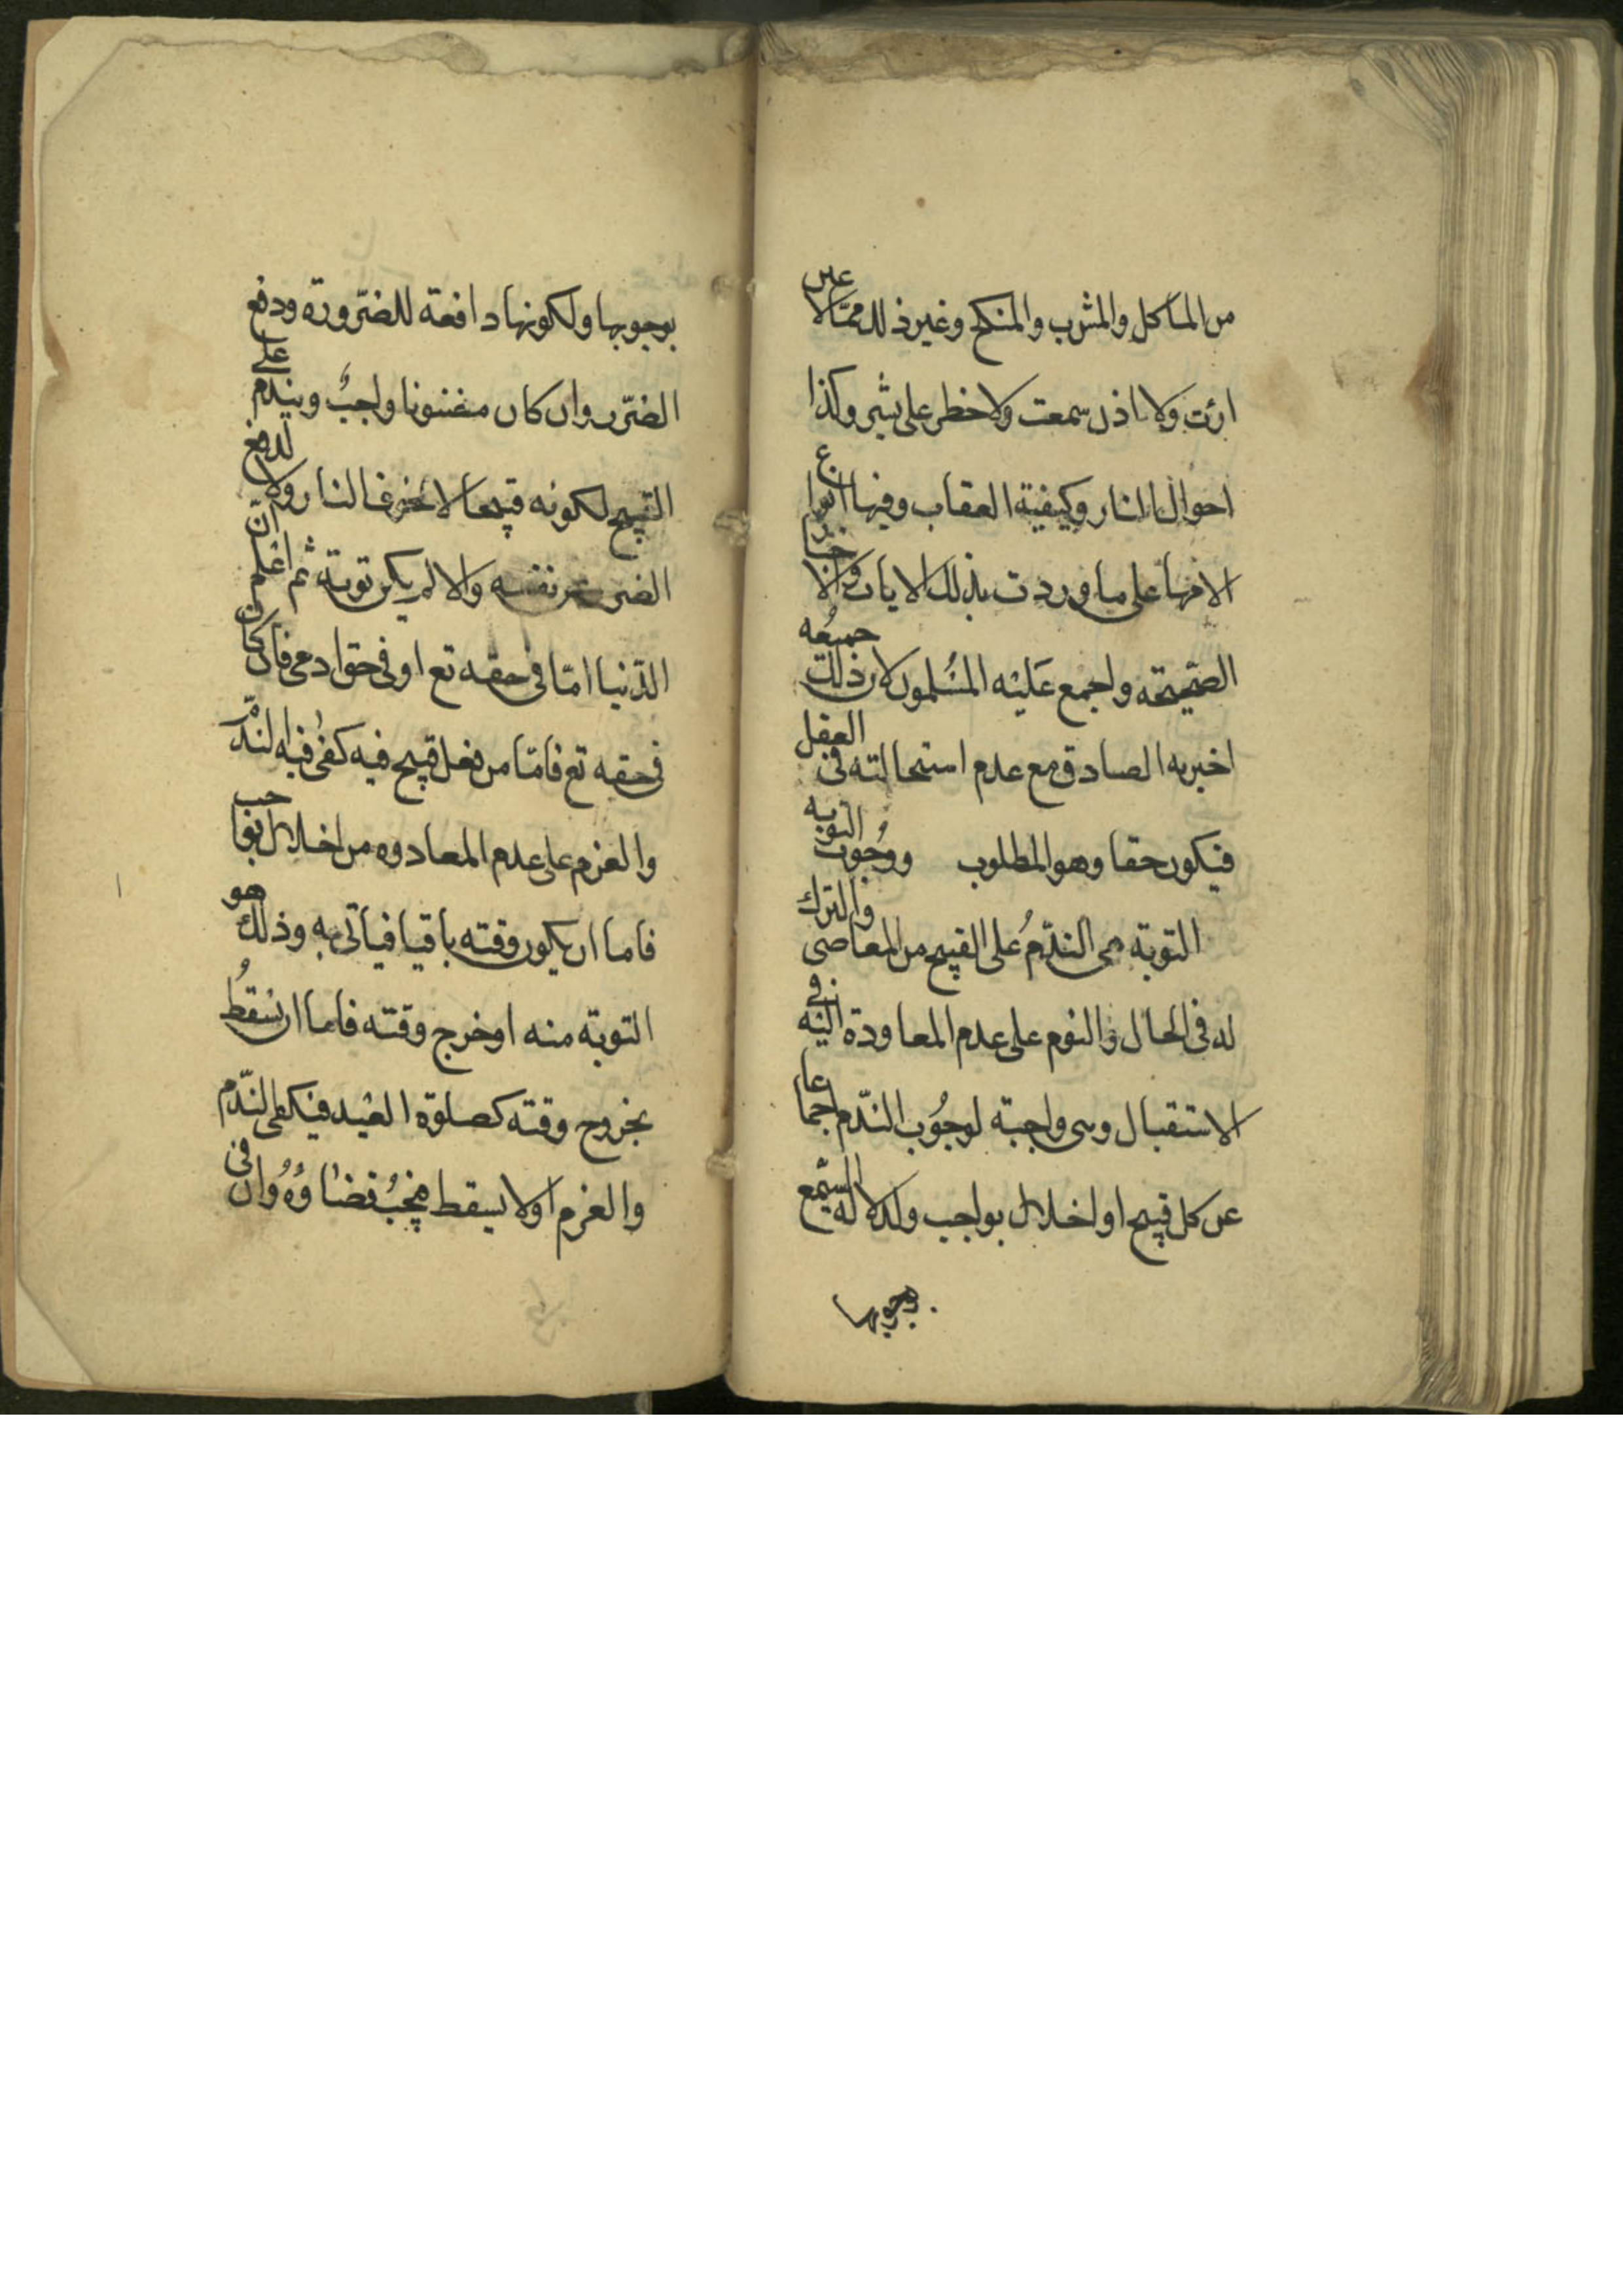 من المأكل والمشرب والمنكح وغير ذلك ممّا لا عين
ارئت ولا اذن سمعت ولا خطر على بشر وكذا
احوال النار وكيفية العقاب وفيها انواع
الامها على ما وردت بذلك الايات والاخبار
الصحيحة واجمع عليه المسلمون لان ذلك جميعه
اخبر به الصادق مع عدم استحالته فى العقل
فيكون حقا وهو المطلوب ووجوب التوبه
التوبة هى الندم على القبيح من المعاصى والترك
له فى الحال والعزم على عدم المعاودة اليه فى
الاستقبال وهى واجبة لوجوب الندم اجماعا
عن كل قبيح او اخلال بواجب ولدلالة السمع
بوجوبها
بوجوبها ولكونها دافعة للضرورة ودفع
الضرر وان كان مضنونا واجب ويندم على
القبيح لكونه قبيحا لا لخوف النار ولا لدفع
الضرر عن نفسه والا لم يكن توبة ثم اعلم ان
الدنيا امّا فى حقه تع او فى حق ادمى فان كان
فى حقه تع فامّا من فعل قبيح فيه كفى فيه الندم
والعزم على عدم المعادوه من اخلال بواجب
فاما ان يكون وقته باقيا فياتى به وذلك هو
التوبة منه او خرج وقته فاما ان يسقط
بخروج وقته كصلوة العيد فيكفى الندم
والعزم اولا يسقط فيجب قضاؤه وان فى